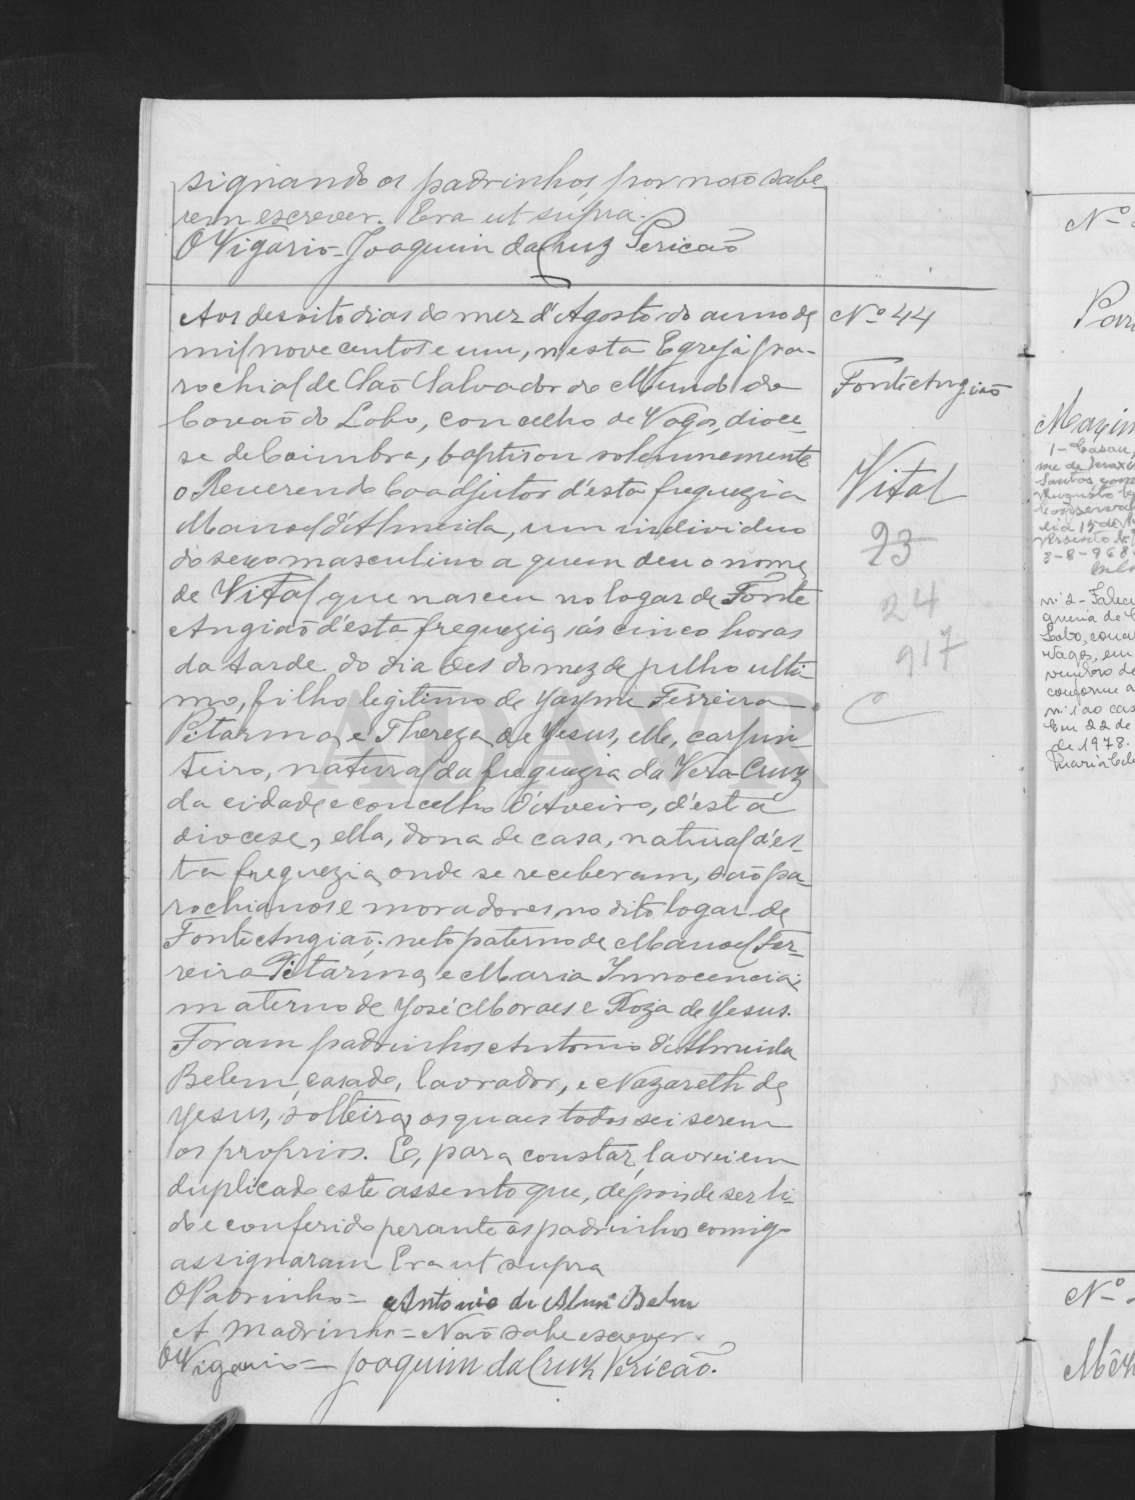 signando os padrinhos por não sabe-
rem escrever. Era ut supra.
O Vigario = Joaquim da Cruz Pericão
Nº 44
Fonte Angião
Vital
23
24
917
Aos desoito dias do mez d'Agosto do anno de
mil nove centos e um, n'esta Egreja pa-
rochial de São Salvador do Mundo da
Covão do Lobo, concelho de Vagos, dioce-
se de Coimbra, baptisou solemnemente
o Reverendo Coadjutor d'esta freguezia
Manoel d'Almeida, um individuo
do sexo masculino a quem deu o nome
de Vital que nasceu no logar de Fonte
Angião d'esta freguezia, ás cinco horas
da tarde do dia des do mez de julho ulti-
mo, filho legitimo de Jayme Ferreira
Pitarma, e Thereza de Jesus, elle, carpin-
teiro, natural da freguezia da Vera-Cruz
da cidade e concelho d'Aveiro, d'esta
diocese, ella, dona de casa, natural d'es-
ta freguezia, onde se receberam, são pa-
rochianos e moradores no dito logar de
Fonte Angião; neto paterno de Manoel Fer-
reira Pitarma, e Maria Innocencia;
materno de José Moraes e Roza de Jesus.
Foram padrinhos Antonio d'Almeida
Belem, casado, lavrador, e Nazareth de
Jesus, solteira, os quaes todos sei serem
os proprios. E, para constar, lavrei em
duplicado este assento que, depois de ser li-
do e conferido perante os padrinhos comigo
assignaram Era ut supra
O Padrinho = Antonio de Belem
A Madrinha = Não sabe escrever.
O Vigario = Joaquim da Cruz Pericão.
ADAVR
Nº
1 - Casou
3-8-968
nº 2 - Falec
Lobo, con
nº 1 ao cas
Em 22 de
de 1978.
Nº